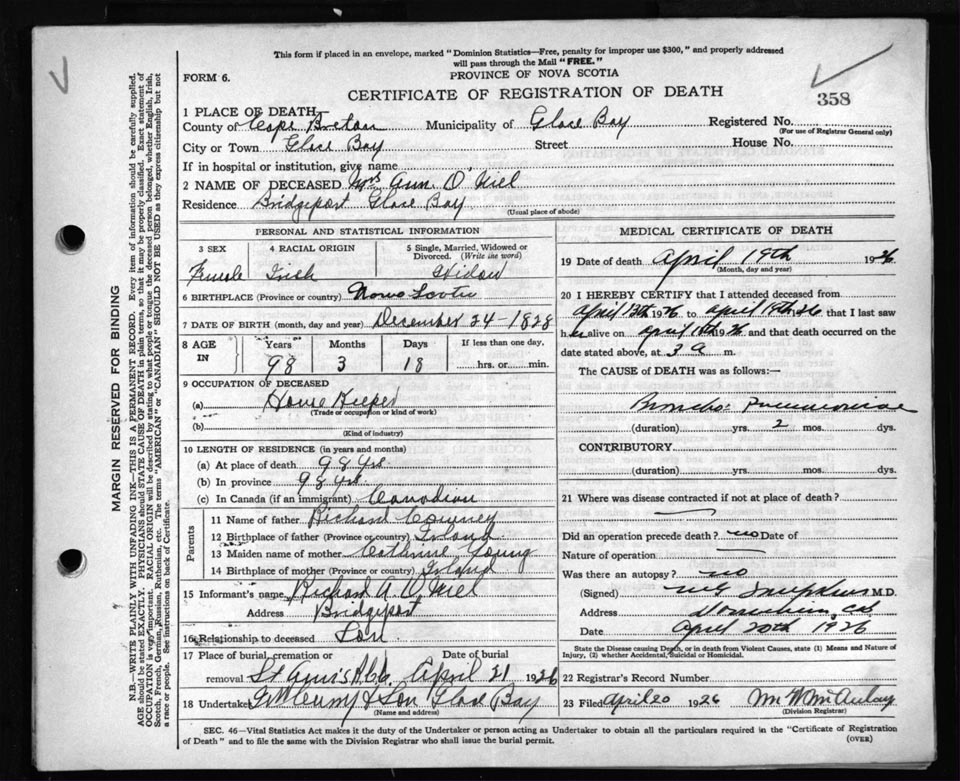 This form if placed in an envelope, marked "Dominion Statistics—Free, penalty for improper use $300," and properly addressed
will pass through the Mail "FREE."
FORM 6.
PROVINCE OF NOVA SCOTIA
CERTIFICATE OF REGISTRATION OF DEATH
358
1 PLACE OF DEATH—
County of Cape Breton Municipality of Glace Bay Registered No.
(For use of Registrar General only)
City or Town Glace Bay Street House No.
If in hospital or institution, give name
2 NAME OF DECEASED Mrs Ann O'Niel
Residence Bridgeport Glace Bay
(Usual place of abode)
PERSONAL AND STATISTICAL INFORMATION
3 SEX 4 RACIAL ORIGIN 5 Single, Married, Widowed or
Divorced. (Write the word)
Female Irish Widow
6 BIRTHPLACE (Province or country) Nova Scotia
7 DATE OF BIRTH (month, day and year) December 24-1828
8 AGE IN Years Months Days If less than one day.
98 3 18 hrs. or min.
9 OCCUPATION OF DECEASED
(a) House Keeper
(Trade or occupation or kind of work)
(b)
(Kind of industry)
10 LENGTH OF RESIDENCE (in years and months)
(a) At place of death 98 yrs.
(b) In province 98 yrs.
(c) In Canada (if an immigrant) Canadian
Parents
11 Name of father Richard
12 Birthplace of father (Province or country) Irland
13 Maiden name of mother Catherine Young
14 Birthplace of mother (Province or country) Irland
15 Informant's name Richard A. O'Niel
Address Bridgeport
16 Relationship to deceased Son
17 Place of burial, cremation or Date of burial
removal St Ann's April 21 1926
18 Undertaker & Son Glace Bay
(Name and address)
MEDICAL CERTIFICATE OF DEATH
19 Date of death April 19th 1926
(Month, day and year)
20 I HEREBY CERTIFY that I attended deceased from
April 13th 1926 to April 19th 1926 that I last saw
her alive on April 1926 and that death occurred on the
date stated above, at 3 a m.
The CAUSE of DEATH was as follows:—
Broncho Pneumoniae
(duration) yrs. 2 mos. dys.
CONTRIBUTORY
(duration) yrs. mos. dys.
21 Where was disease contracted if not at place of death?
Did an operation precede death? no Date of
Nature of operation
Was there an autopsy? no
(Signed) M.D.
Address
Date April 20th 1926
State the Disease causing Death, or in death from Violent Causes, state (1) Means and Nature of
Injury, (2) whether Accidental, Suicidal or Homicidal.
22 Registrar's Record Number
23 Filed April 20 1926 McAulay
(Division Registrar)
SEC. 46—Vital Statistics Act makes it the duty of the Undertaker or person acting as Undertaker to obtain all the particulars required in the "Certificate of Registration
of Death" and to file the same with the Division Registrar who shall issue the burial permit.
(OVER)
MARGIN RESERVED FOR BINDING
N.B.—WRITE PLAINLY WITH UNFADING INK—THIS IS A PERMANENT RECORD. Every item of information should be carefully supplied.
AGE should be stated EXACTLY. PHYSICIANS should STATE CAUSE OF DEATH in plain terms, so that it may be properly classified. Exact statement of
OCCUPATION is very important. RACIAL ORIGIN will be described by stating to what people or tongue the deceased person belonged, whether English, Irish,
Scotch, French, German, Russian, Ruthenian, etc. The terms "AMERICAN" or "CANADIAN" SHOULD NOT BE USED as they express citizenship but not
a race or people. See instructions on back of Certificate.